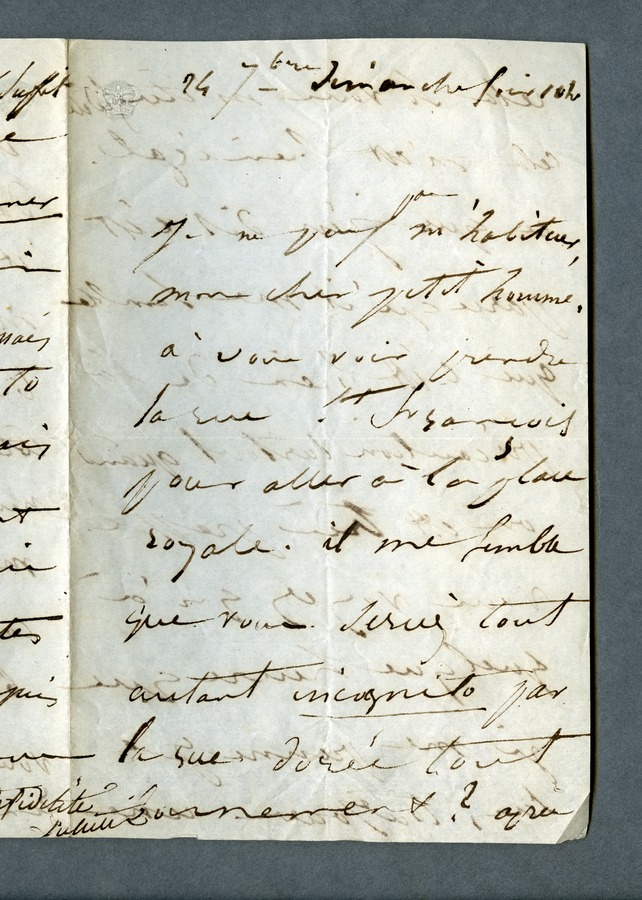 24 7bre Dimanche soir 10h
je ne puis pas m'habituer,
mon cher petit homme,
à vous voir prendre
la rue St François
pour aller à la place
royale. il me semble
que vous seriez tout
autant incognito par
la rue dorée tout
bonnement ? après